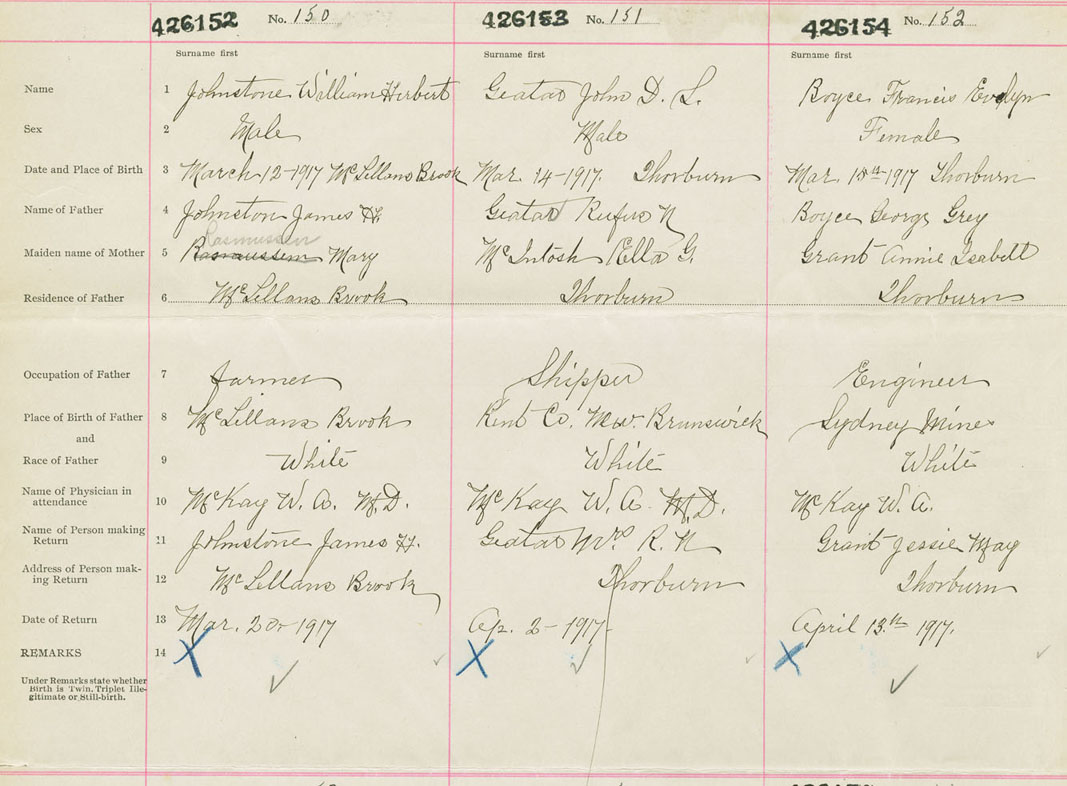 426152 No. 150 426153 No. 151 426154 No. 152
Surname first Surname first Surname first
Name 1 Johnstone William Herbert Geatar John D. L. Boyce Francis Evelyn
Sex 2 Male Male Female
Date and Place of Birth 3 March 12-1917 McLellans Brook Mar. 14-1917. Thorburn Mar. 18th-1917 Thorburn
Name of Father 4 Johnston James H. Geatar Rufus N Boyce George Grey
Rasmussen
Maiden name of Mother 5 Mary McIntosh Ella G. Grant Annie Isabell
Residence of Father 6 McLellans Brook Thorburn Thorburn
Occupation of Father 7 farmer Shipper Engineer
Place of Birth of Father 8 McLellans Brook Kent Co. New Brunswick Sydney Mines
and
Race of Father 9 White White White
Name of Physician in
attendance 10 McKay W. A. M.D. McKay W. A. M.D. McKay W. A.
Name of Person making
Return 11 Johnstone James H. Geatar Mrs R. N Grant Jessie May
Address of Person mak-
ing Return 12 McLellans Brook Thorburn Thorburn
Date of Return 13 Mar. 20 1917 Ap. 2-1917 April 13th 1917.
REMARKS 14
Under Remarks state whether
Birth is Twin, Triplet Ille-
gitimate or Still-birth.